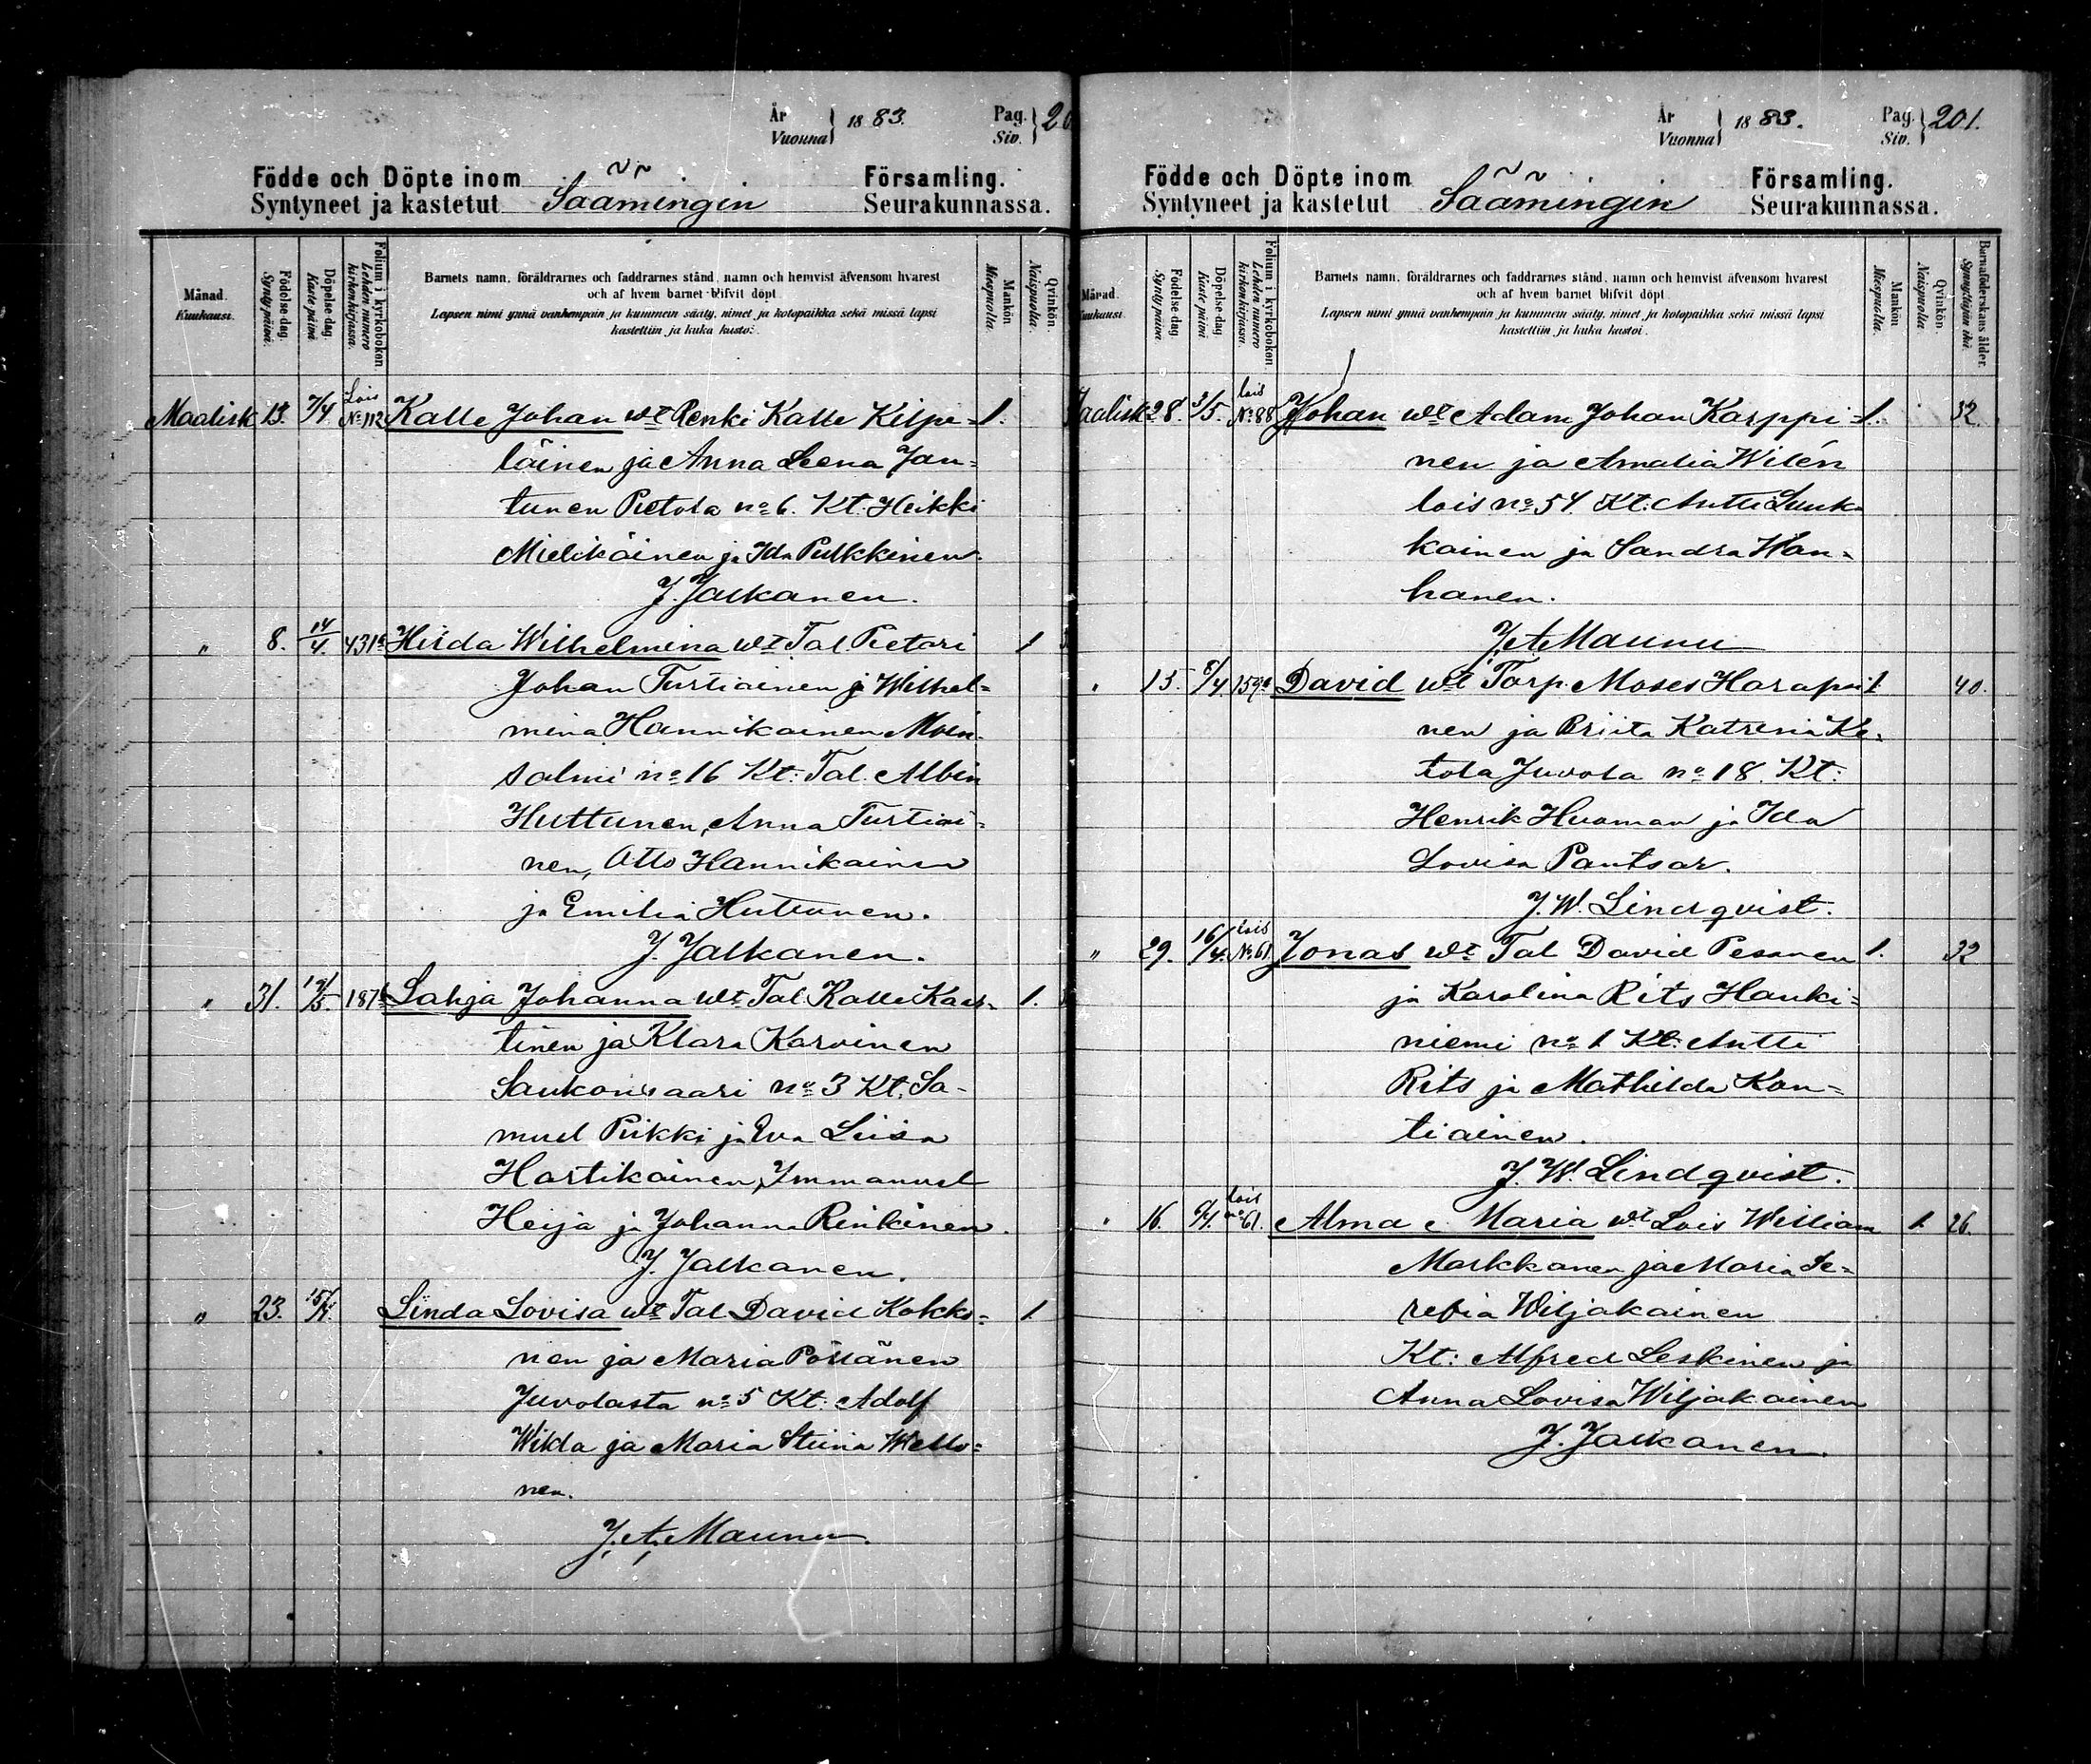 År
Vuonna } 1883.
Pag.
Siv. } 20
Födde och Döpte inom Församling.
Syntyneet ja kastetut Säämingin Seurakunnassa.
Månad. Kuukausi.
Födelse dag. Syntypäivä.
Döpelse dag. Kaste päivä.
Folium i kyrkoboken Lehden numero kirkonkirjassa.
Barnets namn, föräldrarnes och faddrarnes stånd, namn och hemvist äfvensom hvarest
och af hvem barnet blifvit döpt.
Lapsen nimi ynnä vanhempain ja kummein sääty, nimet ja kotopaikka sekä missä lapsi
kastettiin ja kuka kastoi.
Mankön Miespuolia.
Qvinkön. Naispuolia.
Maalisk 13. 7/4. Lois No 112 Kalle Johan wt Renki Kalle Kilpe= 1.
läinen ja Anna Leena Jan=
tunen Pietola no 6. Kt. Heikki
Mielikäinen ja Ida Pulkkinen.
J. Jalkanen.
" 8. 14/4. 431 Hilda Wilhelmina wt Tal Pietari 1
Johan Turtiainen ja Wilhel=
mina Hannikainen Moin=
salmi no 16 Kt: Tal. Albin
Huttunen, Anna Turtiai=
nen, Otto Hannikainen
ja Emilia Huttunen.
J. Jalkanen.
" 31. /5. 187 Lahja Johanna wt Tal. Kalle Kaar= 1.
tinen ja Klara Karvinen
Saukonsaari no 3 Kt. Sa=
muel Piikki ja Eva Liisa
Hartikainen, Immanuel
Heija ja Johanna Rinkinen.
J. Jalkanen.
" 23. 15/4. Linda Lovisa wt Tal David Kokko= 1.
nen ja Maria Pöllänen
Juvolasta no 5 Kt: Adolf
Wilda ja Maria Stiina Wello=
nen.
J. A. Maunu.
År
Vuonna } 1883.
Pag.
Siv. } 201.
Födde och Döpte inom Församling.
Syntyneet ja kastetut Säämingin Seurakunnassa.
Månad. Kuukausi.
Födelse dag. Syntypäivä.
Döpelse dag. Kaste päivä.
Folium i kyrkoboken Lehden numero kirkonkirjassa.
Barnets namn, föräldrarnes och faddrarnes stånd, namn och hemvist äfvensom hvarest
och af hvem barnet blifvit döpt.
Lapsen nimi ynnä vanhempain ja kummein sääty, nimet ja kotopaikka sekä missä lapsi
kastettiin ja kuka kastoi.
Mankön Miespuolia.
Qvinkön. Naispuolia.
Barnaföderskans ålder. Synnyttäjän ikä.
Maalisk 28. 3/5. lois No 88 Johan wt Adam Johan Karppi= 1. 32.
nen ja Amalia Wilén
lois no 54 Kt: Antti Luuk=
kainen ja Sandra Han=
hanen.
J. A. Maunu
" 15. 8/4. 159 David wt Torp. Moses Harapai 1. 40.
nen ja Briita Katrina Ke=
tola Juvola no 18. Kt:
Henrik Huoman ja Ida
Lovisa Pantsar.
J. W. Lindqvist.
" 29. 16/4. lois No 61. Jonas wt Tal David Pesonen 1. 32
ja Karolina Rits Hauki=
niemi no 1 Kt: Antti
Rits ja Mathilda Kon=
tiainen.
J. W. Lindqvist.
" 16. /4. lois no 61. Alma Maria wt Lois William 1. 26.
Markkanen ja Maria Se=
refia Wiljakainen
Kt: Alfred Leskinen ja
Anna Lovisa Wiljakainen
J. Jalkanen.